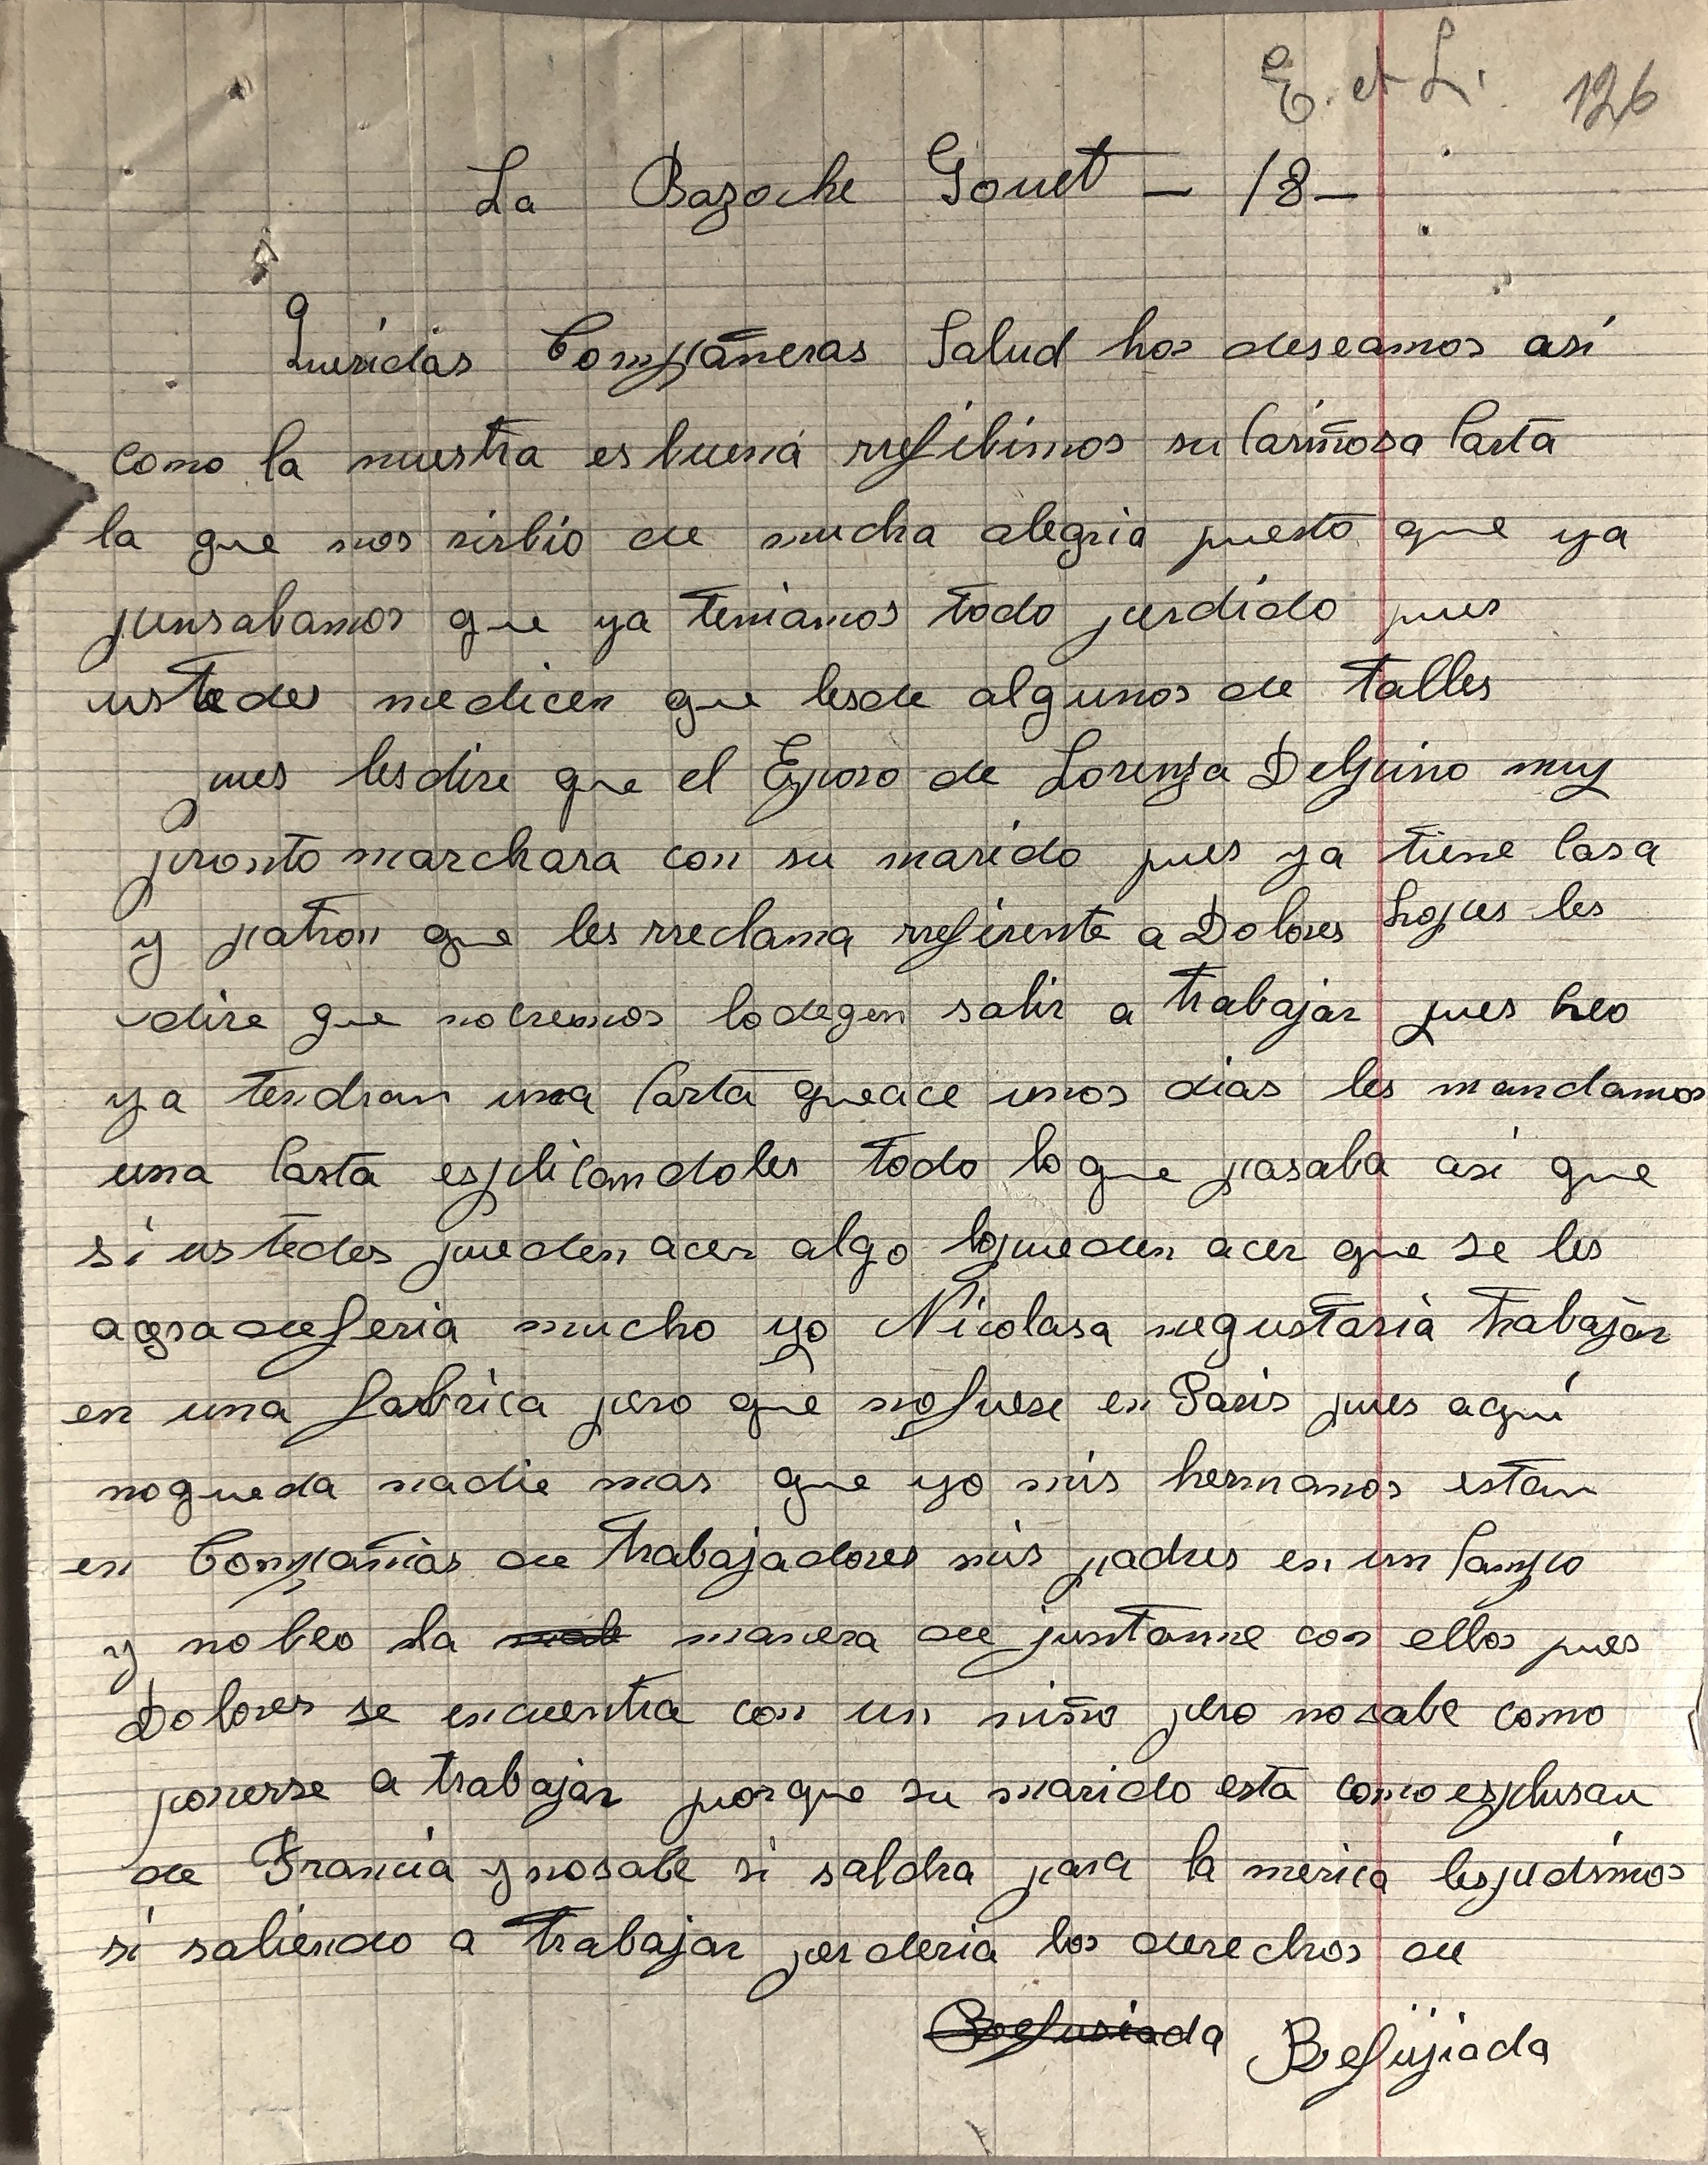 E. et L. 126
La Bazoche Gouet — 18 —
Queridas Compañeras Salud hos deseamos así
como la nuestra es buena rrefibimos su Cariñosa Carta
la que nos sirbio de mucha alegria puesto que ya
pensabamos que ya teniamos todo perdido pues
ustedes medicen que lesde algunos de talles
pues lesdire que el Esposo de Lorenza Delpino muy
pronto marchara con su marido pues ya tiene Casa
y patron que les rreclama rrefirente a Dolores Lopes les
dire que nocreemos lodegen salir a trabajar pues creo
ya tendran una Carta queace unos dias les mandamos
una Carta esplicandoles todo lo que pasaba asi que
si ustedes pueden acer algo lopueden acer que se les
agradeferia mucho yo Nicolasa megustaria trabajar
en una fabrica pero que nofuese en Paris pues aquí
noqueda nadie mas que yo mis hermanos estan
en Compañias de trabajadores mis padres en un Campo
y no beo la manera de juntarme con ellos pues
Dolores se encuentra con un niño pero nosabe como
ponerse a trabajar porque su marido esta como esplusau
de Francia y nosabe si saldra para la merica lespedimos
si saliendo a trabajar perderia los derechos de
Refusiada Refujiada